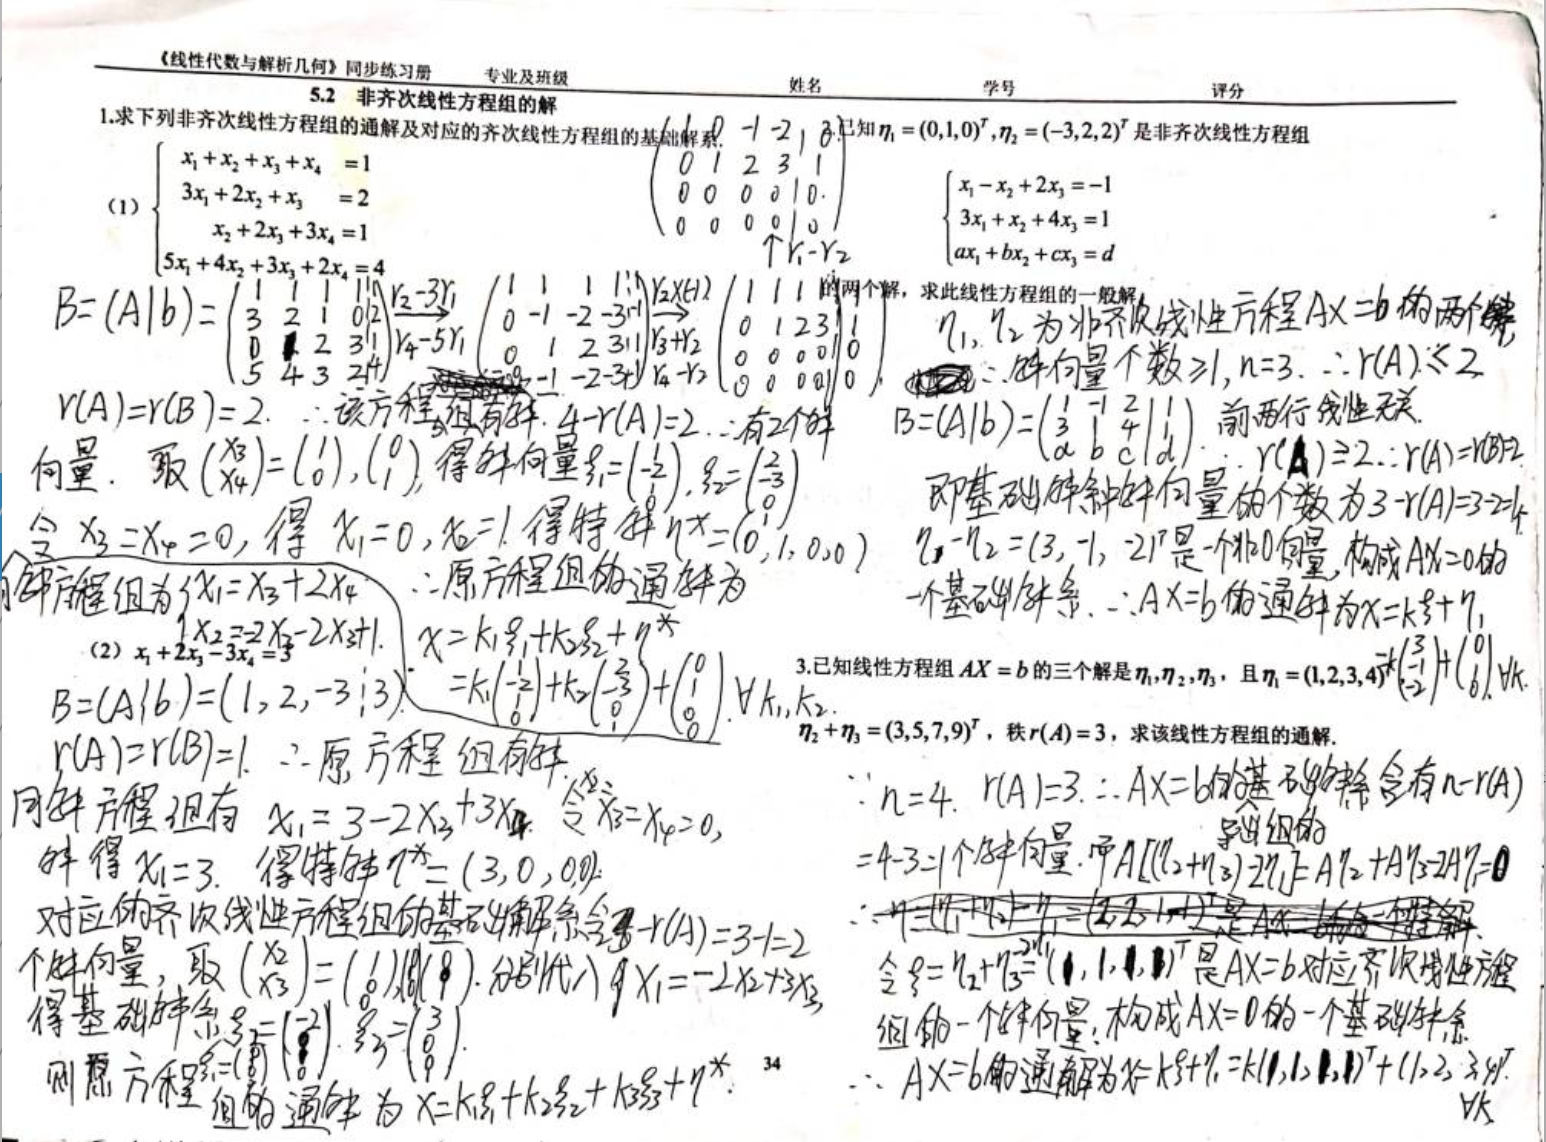 《线性代数与解析几何》同步练习册 专业及班级 姓名 学号 评分
5.2 非齐次线性方程组的解
1.求下列非齐次线性方程组的通解及对应的齐次线性方程组的基础解系.
(1) x₁+x₂+x₃+x₄ =1
3x₁+2x₂+x₃ =2
x₂+2x₃+3x₄=1
5x₁+4x₂+3x₃+2x₄=4
1 0 -1 -2 | 0
0 1 2 3 1
0 0 0 0 | 0
0 0 0 0 | 0
↑r₁-r₂
B=(A|b)= r₂-3r₁ r₂×(-1)
r₄-5r₁ r₃+r₂
r₄-r₂
1 1 1 1 | 1
3 2 1 0 | 2
0 1 2 3 | 1
5 4 3 2 | 4
1 1 1 1 | 1
0 -1 -2 -3 | -1
0 1 2 3 | 1
0 -1 -2 -3 | -1
1 1 1 1 | 1
0 1 2 3 | 1
0 0 0 0 | 0
0 0 0 0 | 0
r(A)=r(B)=2. ∴该方程组有解. 4-r(A)=2. ∴有2个解
向量. 取(x₃ x₄)=(1 0),(0 1),得解向量ξ₁=(1 -2 1 0),ξ₂=(2 -3 0 1)
令x₃=x₄=0,得x₁=0,x₂=1.得特解η*=(0,1,0,0)
同解方程组为{x₁=x₃+2x₄ ∴原方程组的通解为
x₂=-2x₃-2x₃+1. x=k₁ξ₁+k₂ξ₂+η*
=k₁(1 -2 1 0)+k₂(2 -3 0 1)+(0 1 0 0).∀k₁,k₂.
(2) x₁+2x₃-3x₄=3
B=(A|b)=(1,2,-3¦3).
r(A)=r(B)=1. ∴原方程组有解.
同解方程组有 x₁=3-2x₃+3x₄ 令x₂=x₃=x₄=0,
解得x₁=3. 得特解η*=(3,0,0,0).
对应的齐次线性方程组的基础解系含-r(A)=3-1=2
个解向量,取(x₂ x₃)=(1 0) . 分别代入 x₁=-2x₂+3x₃
得基础解系ξ₂=(-2 0),ξ₃=(3 0 0).
则原方程组的通解为x=k₁ξ₁+k₂ξ₂+k₃ξ₃+η*.
已知η₁=(0,1,0)ᵀ,η₂=(-3,2,2)ᵀ是非齐次线性方程组
x₁-x₂+2x₃=-1
3x₁+x₂+4x₃=1
ax₁+bx₂+cx₃=d
的两个解,求此线性方程组的一般解.
η₁,η₂为非齐次线性方程AX=b的两个解,
∴解向量个数≥1,n=3. ∴r(A)≤2
B=(A|b)=(1 -1 2 | 1
3 1 4 | 1
a b c | d). 前两行线性无关.
∴r(A)≥2.∴r(A)=r(B)=2.
即基础解系中解向量的个数为3-r(A)=3-2=1个
η₁-η₂=(3,-1,-2)ᵀ是一个非0向量,构成AX=0的
一个基础解系.∴AX=b的通解为x=kξ+η₁
=k(3 -1 -2)+(0 1 0).∀k.
3.已知线性方程组AX=b的三个解是η₁,η₂,η₃,且η₁=(1,2,3,4)ᵀ
η₂+η₃=(3,5,7,9)ᵀ,秩r(A)=3,求该线性方程组的通解.
∵n=4. r(A)=3.∴AX=b的基础解系含有n-r(A)
导出组的
=4-3=1个解向量.而A[(η₂+η₃)-2η₁]=Aη₂+Aη₃-2Aη₁=0
令ξ=η₂+η₃-2η₁=(1,1,1,1)ᵀ是AX=b对应齐次线性方程
组的一个解向量,构成AX=0的一个基础解系
∴AX=b的通解为x=kξ+η₁=k(1,1,1,1)ᵀ+(1,2,3,4)ᵀ.
∀k
34